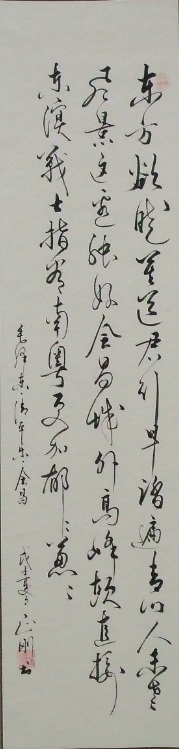 东方欲晓莫道君行早踏遍青山人未老
风景这边独好会昌城外高峰颠直接
东溟战士指看南粤更加郁〻葱〻
毛泽东清平乐会昌
明书